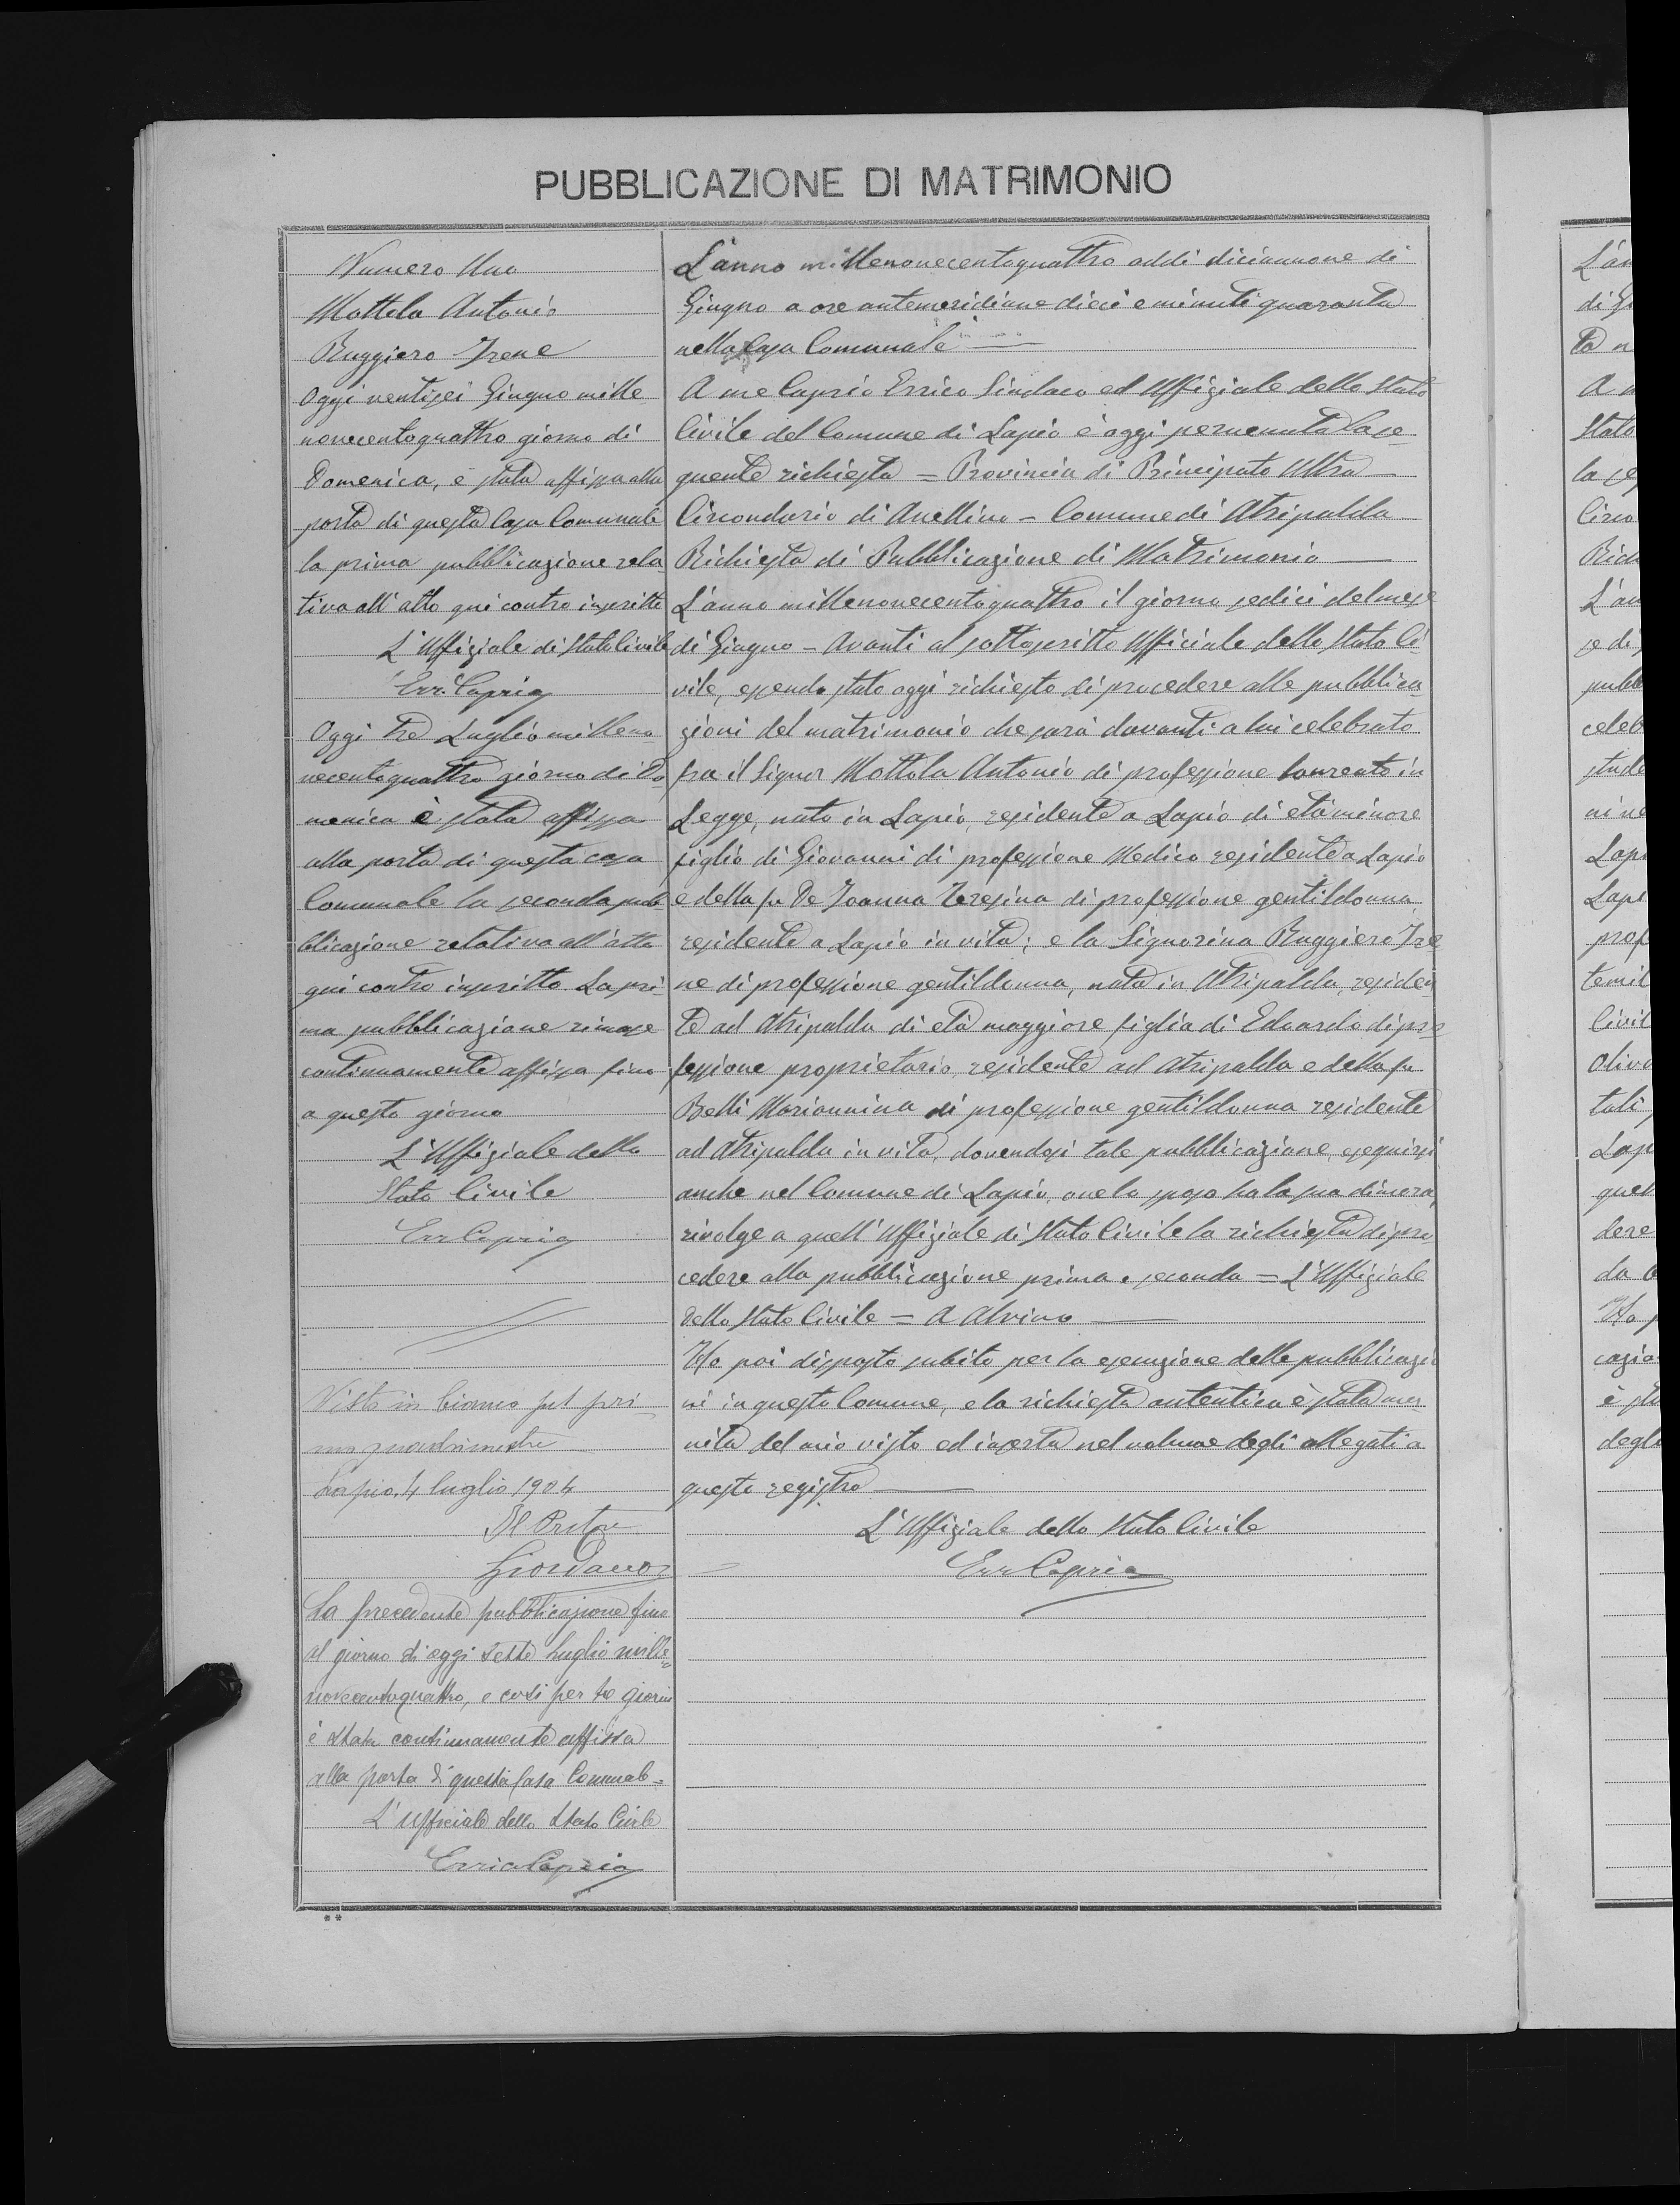 PUBBLICAZIONE DI MATRIMONIO
Numero Uno
Mottola Antonio
Ruggiero Irene
Oggi ventisei Giugno mille
novecentoquattro giorno di
Domenica, è stata affissa alla
porta di questa Casa Comunale
la prima pubblicazione rela
tiva all'atto qui contro inscritto
L'Uffiziale di Stato Civile
Err. Caprio
Oggi tre Luglio milleno
vecentoquattro giorno di Do
menica è stata affissa
alla porta di questa casa
Comunale la seconda pub
blicazione relativa all'atto
qui contro inscritto. La pri-
ma pubblicazione rimase
continuamente affissa fino
a questo giorno
L'Uffiziale dello
Stato Civile
Err Caprio
Visto in
Lapio, 4 luglio 1904
Il Pretore
Giordano
La precedente pubblicazione fino
al giorno di oggi sette Luglio mille=
novecentoquattro, e così per tre giorni
è stata continuamente affissa
alla porta di questa Casa Comunale=
L'Ufficiale dello Stato Civile
Errico Caprio
**
L'anno millenovecentoquattro addì diciannove di
Giugno a ore antemeridiane dieci e minuti quaranta
nella Casa Comunale
A me Caprio Errico Sindaco ed Uffiziale dello Stato
Civile del Comune di Lapio è oggi pervenuta la se-
guente richiesta = Provincia di Principato Ultra
Circondario di Avellino - Comune di Atripalda
Richiesta di Pubblicazione di Matrimonio
L'anno millenovecentoquattro il giorno sedici del mese
di Giugno - Avanti al sottoscritto Ufficiale dello Stato Ci-
vile, essendo stato oggi richiesto di procedere alle pubblica-
zioni del matrimonio che sarà davanti a lui celebrato
fra il Signor Mottola Antonio di professione laureato in
Legge, nato in Lapio, residente a Lapio di età minore
figlio di Giovanni di professione Medico residente a Lapio
e della fu De Joanna Teresina di professione gentildonna
residente a Lapio in vita; e la Signorina Ruggiero Ire
ne di professione gentildonna, nata in Atripalda, residen
te ad Atripalda di età maggiore figlia di Eduardo di pro
fessione proprietario, residente ad Atripalda e della fu
Belli Mariannina di professione gentildonna residente
ad Atripalda in vita, dovendosi tale pubblicazione, eseguirsi
anche nel Comune di Lapio, ove lo sposo ha la sua dimora,
rivolge a quell'Uffiziale di Stato Civile la richiesta di pro
cedere alla pubblicazione prima e seconda = L'Uffiziale
dello Stato Civile = A Alvino
Ho poi disposto subito per la esecuzione delle pubblicazio
ni in questo Comune, e la richiesta autentica è stata mu
nita del mio visto ed inserta nel volume degli allegati a
questo registro
L'Uffiziale dello Stato Civile
Err Caprio